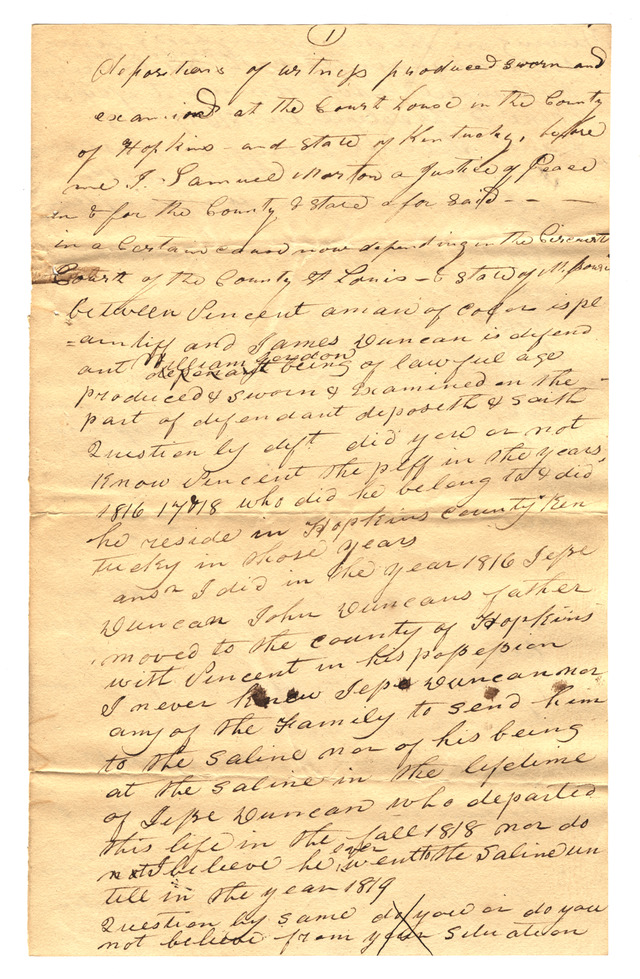 1
depositions of witness produced sworn and
examined at the Court house in the County
of Hopkins and state of Kentucky, before
me I. Samuel Morton a Justice of Peace
in & for the County & State afor said - - -
in a Certain cause now depending in the Circuit
Court of the County St Louis - & State of Missouri
between Vincent a man of color is pl
=aintiff and James Duncan is defend
ant William Gordon being of lawful age
produced & sworn & Examined on the
part of defendant deposeth & saith
Question by deft did you or not
Know Vincent the plff in the years,
1816 17 & 18 who did he belong to & did
he reside in Hopkins County Ken
tucky in those years
ansr I did in the year 1816 Jesse
Duncan John Duncans father
moved to the county of Hopkins
with Vincent in his possession
I never knew Jesse Duncan nor
any of the Family to send him
to the Saline nor of his being
at the Saline in the lifetime
of Jesse Duncan who departed
this life in the fall 1818 nor do
I believe he ever went to the Saline un
till in the year 1819
Question by same do you or do you
not believe from your situation